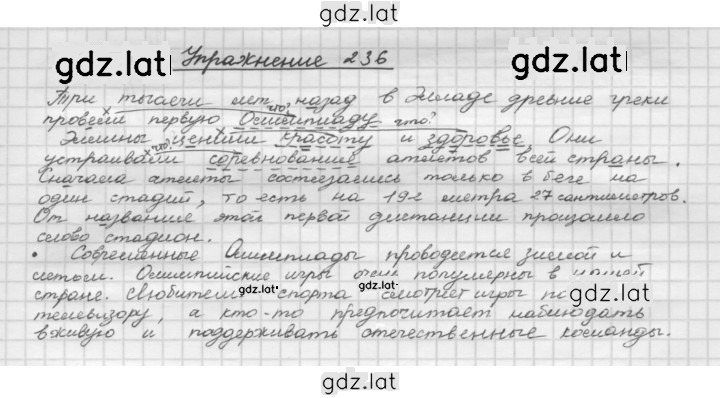 gdz.lat
gdz.lat Упражнение 236 gdz.lat
Три тысячи лет назад в Элладе древние греки
что?
провели первую Олимпиаду что?
Эллины ценили красоту и здоровье. Они
что?
устраивали соревнования атлетов всей страны.
Сначала атлеты состязались только в беге на
один стадий, то есть на 192 метра 27 сантиметров.
От названия этой первой дистанции произошло
слово стадион.
• Современные Олимпиады проводятся зимой и
летом. Олимпийские игры очень популярны в нашей
стране. Любители gdz.lat спорта gdz.lat смотрят игры по gdz.lat
телевизору, а кто-то предпочитает наблюдать
вживую и поддерживать отечественные команды.
gdz.lat